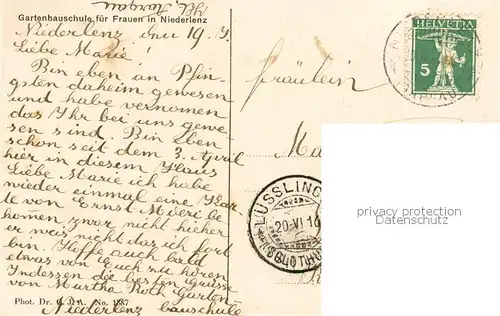 Kt. Aargau
Gartenbauschule für Frauen in Niederlenz
Niederlenz den 19.
Liebe Marie!
Bin eben an Pfin-
gsten daheim gewesen
und habe vernomen
das Ihr bei uns gewe
sen sind. Bin eben
schon seit dem 3. April
hier in diesem Haus
Liebe Marie ich habe
wieder einmal eine Kar
te von Ernst Moeri be
komen zwar nicht hieher
er weis nicht das ich fort
bin. Hoffe auch bald
etwas von Euch zu hören
Indessen die besten Grüsse
von Martha Roth Garten-
Niederlenz bauschule
Phot. Dr. No. 1387
Fräulein
Ma
HELVETIA
5
LÜSSLING
20.VI.16
(SOLOTHU
privacy protection
Datenschutz